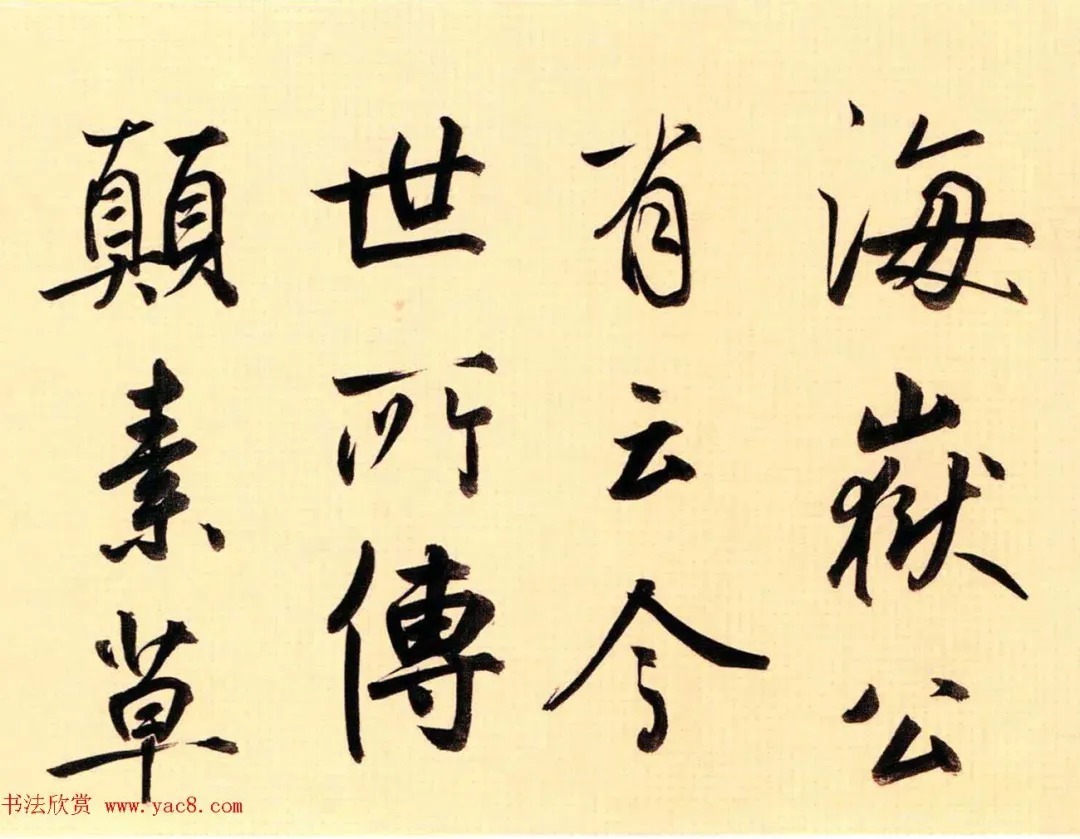 海嶽公
肯云今
世所傳
顛素草
书法欣赏 www.yac8.com